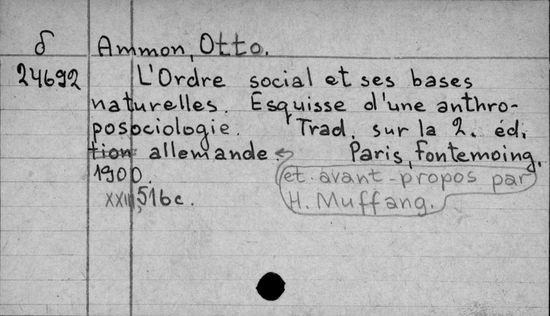 δ Ammon, Otto.
24692 L'Ordre social et ses bases
naturelles. Esquisse d'une anthro-
posociologie. Trad. sur la 2. éd.
tion allemande. Paris, Fontemoing,
1900. et avant-propos par
XXIII, 516 c. H. Muffang.